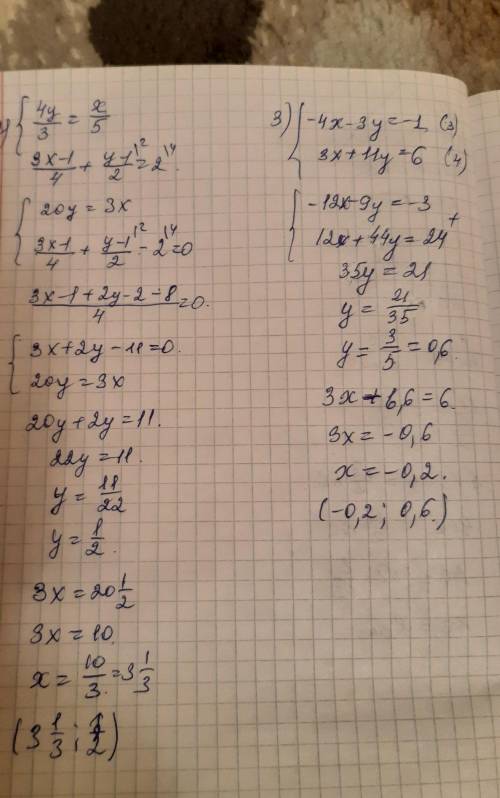 4y/3 = x/5
(3x-1)/4 + (y-1)/2 |2 = 2 |4.
20y = 3x
(3x-1)/4 + (y-1)/2 |2 - 2 |4 = 0
(3x-1+2y-2-8)/4 = 0.
3x+2y-11=0.
20y=3x
20y+2y=11.
22y=11.
y = 11/22
y = 1/2.
3x = 20 1/2
3x = 10.
x = 10/3. = 3 1/3
(3 1/3; 1/2)
3) -4x-3y=-1 (3)
3x+11y=6 (4)
-12x-9y=-3
+
12x+44y=24
35y=21
y = 21/35
y = 3/5 = 0,6.
3x+6,6=6.
3x=-0,6
x=-0,2.
(-0,2; 0,6.)